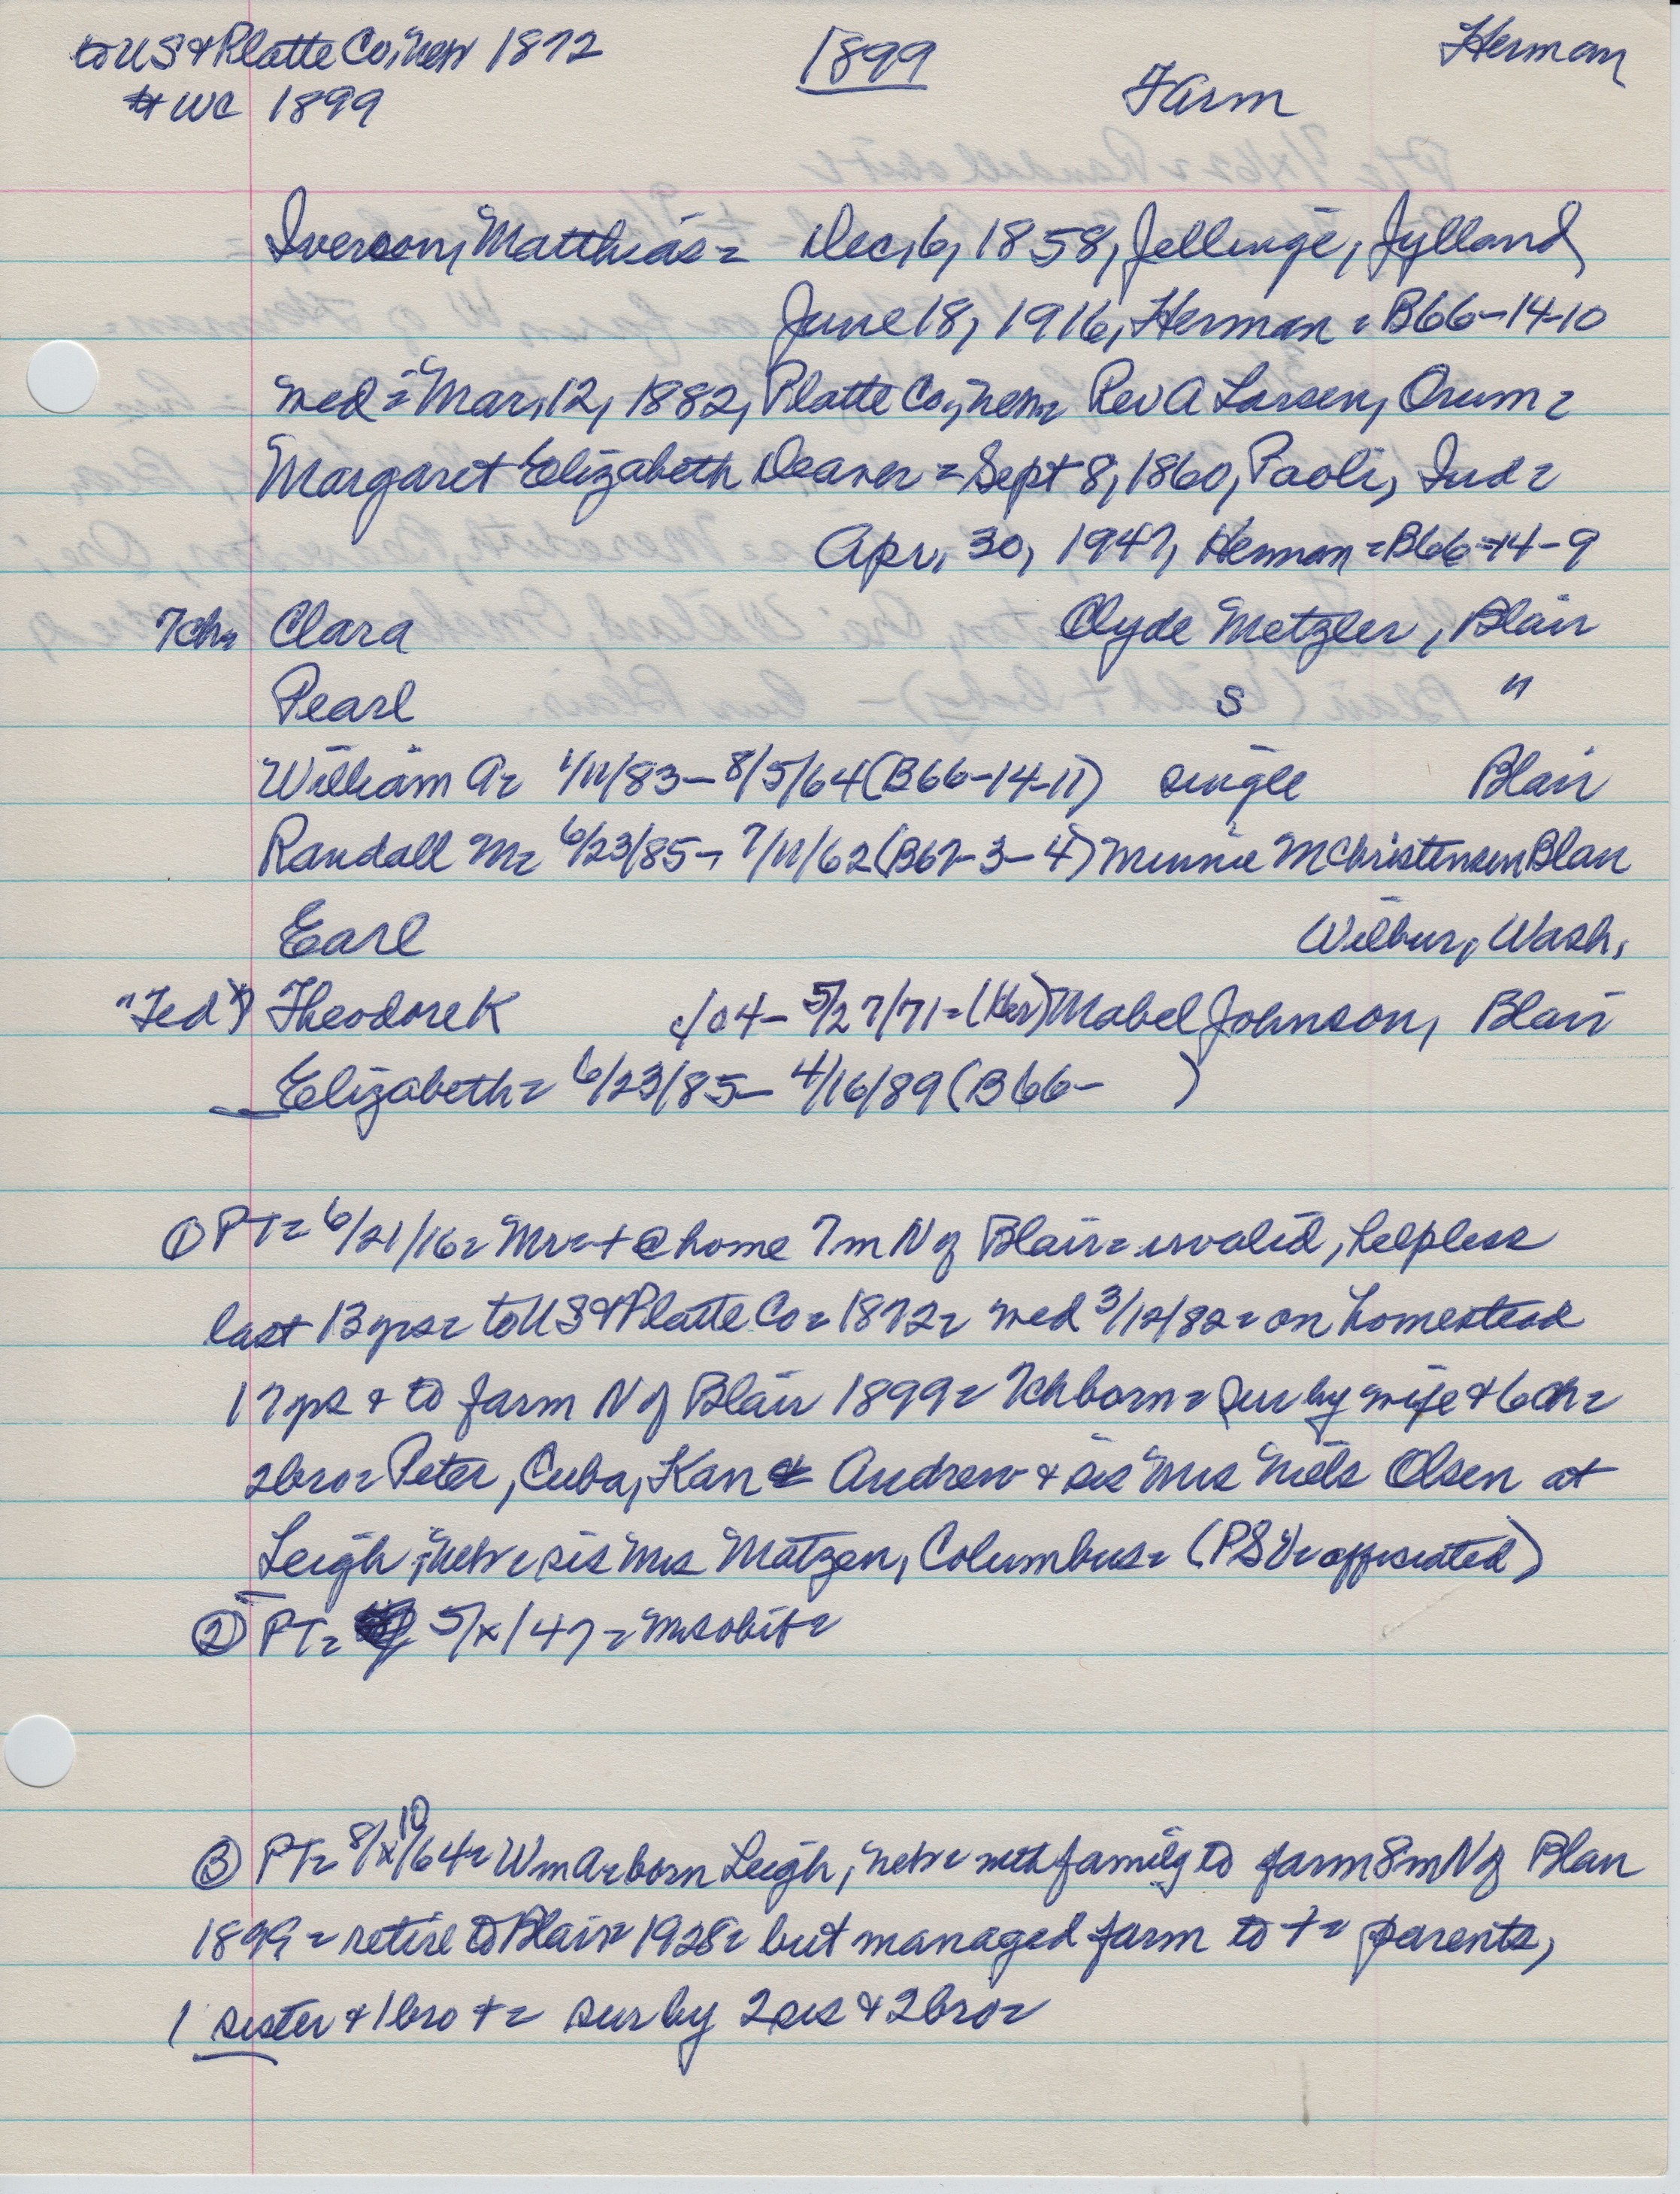 to US & Platte Co, Nebr 1872 1899 Herman
to WC 1899 Farm
Iverson, Matthias = Dec, 6, 1858, Jellinge, Jylland
June 18, 1916, Herman = B66-14-10
Wed = Mar, 12, 1882, Platte Co, Nebr = Rev A Larsen, Orum =
Margaret Elizabeth Deaver = Sept 8, 1860, Paoli, Ind =
Apr, 30, 1947, Herman = B66-14-9
7ch = Clara Clyde Metzler, Blair
Pearl S "
William A = 1/11/83 - 8/5/64 (B66-14-11) single Blair
Randall M = 6/23/85 - 7/11/62 (B67-3-4) Minnie M Christensen Blair
Earl Wilbur, Wash,
"Ted") Theodore K /04 - 5/27/71 = (Her) Mabel Johnson, Blair
Elizabeth = 6/23/85 - 4/16/89 (B66- )
① PT = 6/21/16 = Mr = + @ home 7m N of Blair = invalid, helpless
last 13 yrs = to US & Platte Co = 1872 = wed 3/12/82 = on homestead
17 yrs & to farm N of Blair 1899 = 7ch born = sur by wife & 6ch =
2bro = Peter, Cuba, Kan & Andrew & sis Mrs Niels Olsen at
Leigh, Nebr = sis Mrs Matzen, Columbus = (PSV = officiated)
② PT = 5/x/47 = Mrs obit =
③ PT = 8/x/64 = 10 Wm A = born Leigh, Nebr = with family to farm 8m N of Blair
1899 = retire to Blair = 1928 = but managed farm to + = parents,
1 sister & 1 bro + = sur by 2 sis & 2 bro =